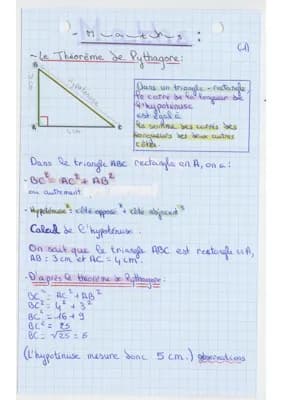 - Maths :
(1)
- Le Théorème de Pythagore :
B
3cm
Hypoténuse
A
4cm
C
Dans un triangle-rectangle,
le carré de la longueur de
l'hypoténuse
est égal à
la somme des carrés des
longueurs des deux autres
côtés.
Dans le triangle ABC rectangle en A, on a :
- BC² = AC² + AB²
ou autrement
- Hypoténuse² = côté opposé² + côté adjacent²
Calcul de l'hypoténuse.
On sait que le triangle ABC est rectangle en A,
AB : 3 cm et AC = 4 cm.
- D'après le théorème de Pythagore :
BC² = AC² + AB²
BC² = 4² + 3²
BC² = 16 + 9
BC² = 25
BC = √25 = 5
(L'hypoténuse mesure donc 5 cm.) observations